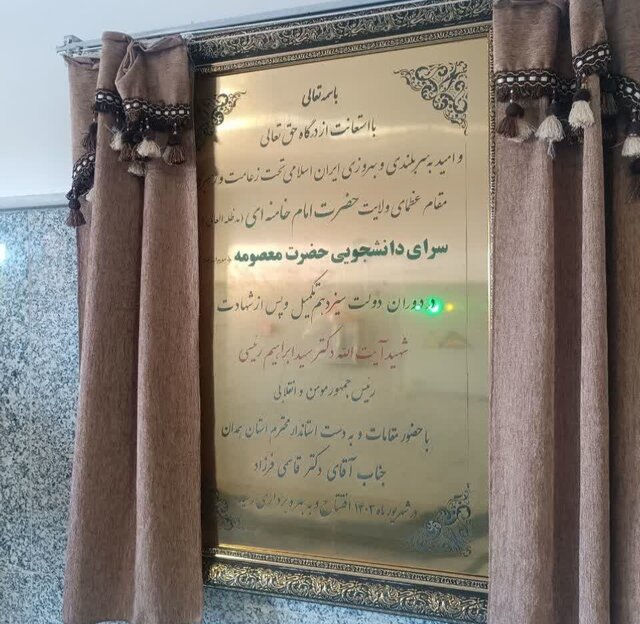 باسمه تعالی
با استعانت از درگاه حق تعالی
و امید به سربلندی و بهروزی ایران اسلامی تحت زعامت و
مقام عظمای ولایت حضرت امام خامنه ای (مد ظله العالی)
سرای دانشجویی حضرت معصومه
در دوران دولت سیزدهم تکمیل و پس از شهادت
شهید آیت الله دکتر سید ابراهیم رئیسی
رئیس جمهور مومن و انقلابی
با حضور مقامات و به دست استاندار محترم استان همدان
جناب آقای دکتر قاسمی فرزاد
در شهریور ماه ۱۴۰۳ افتتاح و به بهره برداری رسید